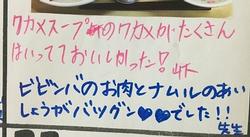 ワカメスープのワカメがたくさん
はいっておいしかった!
ビビンバのお肉とナムルのあい
しょうがバツグン♥♥でした!!
先生